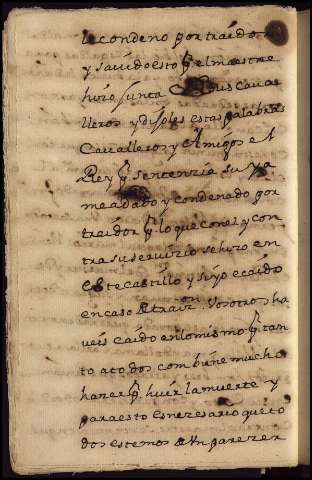 lecondeno por traidor
y savido esto q el maestre
hizo junta de sus cava
lleros y disoles estas palabras
Cavalleros y Amigos el
Rey q sentenzia su ya
me a dado y condenado por
traidor q lo que con el y con
tra su servizio se hizo en
este castillo y si yo e caido
en caso de traizon. Vosotros ha
veis caido en lo mismo q tan
to a todos combiene mucho
hazer q huir la muerte y
para esto es nezesario que to
dos estemos de Un parezer